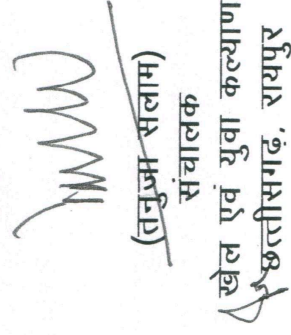 (तनुजा सलाम)
संचालक
खेल एवं युवा कल्याण
छत्तीसगढ़, रायपुर